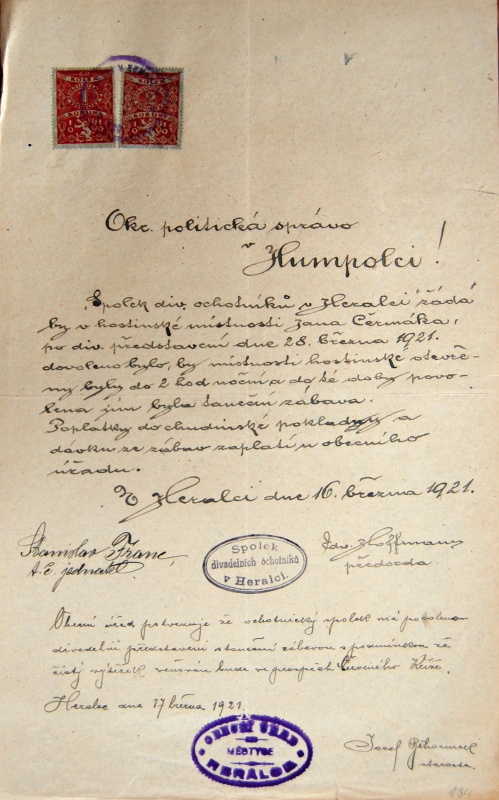 KOLEK KOLEK
1 2
KORUNA KORUNY
1919 1919
Okr. politická správo
v Humpolci!
Spolek div. ochotníků v Heralci žádá
by v hostinské místnosti Jana Čermáka,
po div. představení dne 28. března 1921.
dovoleno bylo, by místnosti hostinské otevře-
ny byly do 2 hod noční a do té doby povo-
lena jim byla taneční zábava.
Poplatky do chudinské pokladny a
dávku ze zábav zaplatí u obecního
úřadu.
V Heralci dne 16. března 1921.
Stanislav Franc,
t. č. jednatel.
Spolek
divadelních ochotníků
v Heralci.
Edv. Hoffmann
předseda
Obecní úřad potvrzuje že ochotnický spolek má povolenou
divadelní představení s taneční zábavou s podmínkou že
čistý výtěžek věnován bude ve prospěch Červeného Kříže.
Heralec dne 17 března 1921.
OBECNÍ ÚŘAD
MĚSTYSE
HERALCE
Josef
starosta